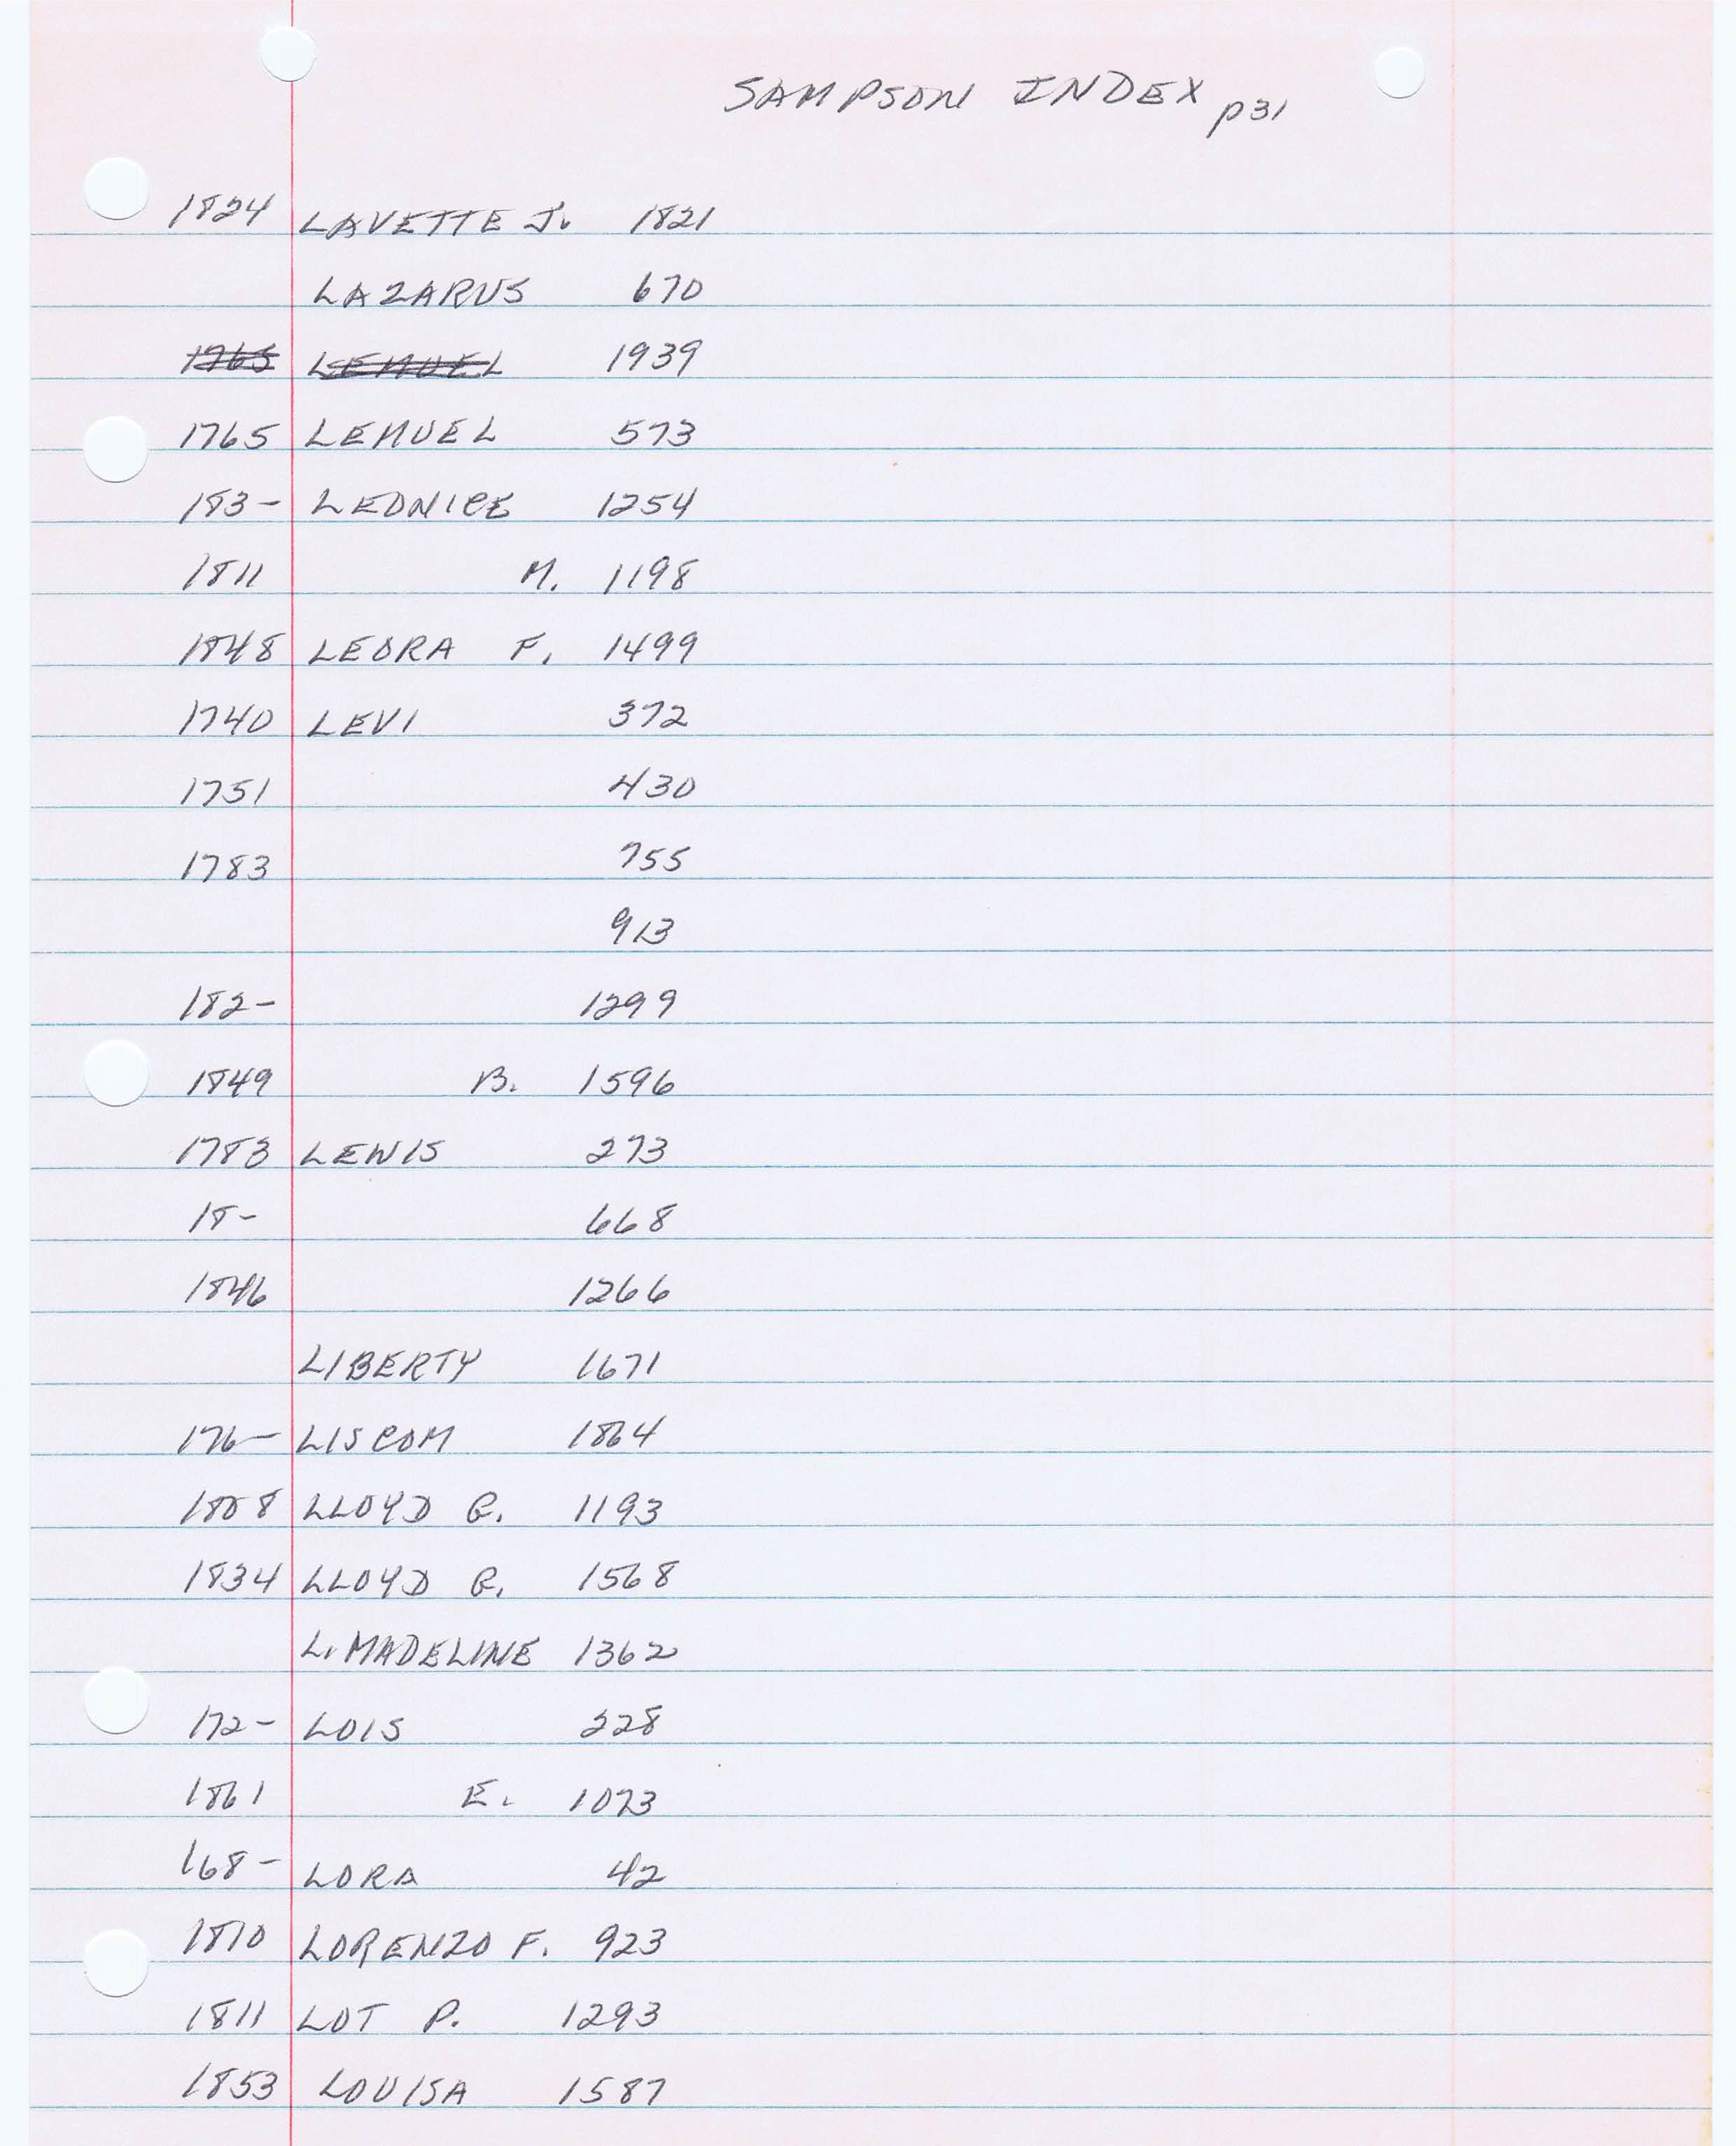 SAMPSON INDEX p31
1824 LAVETTE J. 1821
LAZARUS 670
1765 LEMUEL 1939
1765 LEMUEL 573
183- LEONICE 1254
1811 M. 1198
1848 LEORA F. 1499
1740 LEVI 372
1751 430
1783 755
913
182- 1299
1849 B. 1596
1783 LEWIS 273
18- 668
1846 1266
LIBERTY 1671
176- LISCOM 1864
1808 LLOYD G. 1193
1834 LLOYD G. 1568
L. MADELINE 1362
172- LOIS 228
1861 E. 1073
168- LORA 42
1810 LORENZO F. 923
1811 LOT P. 1293
1853 LOUISA 1587